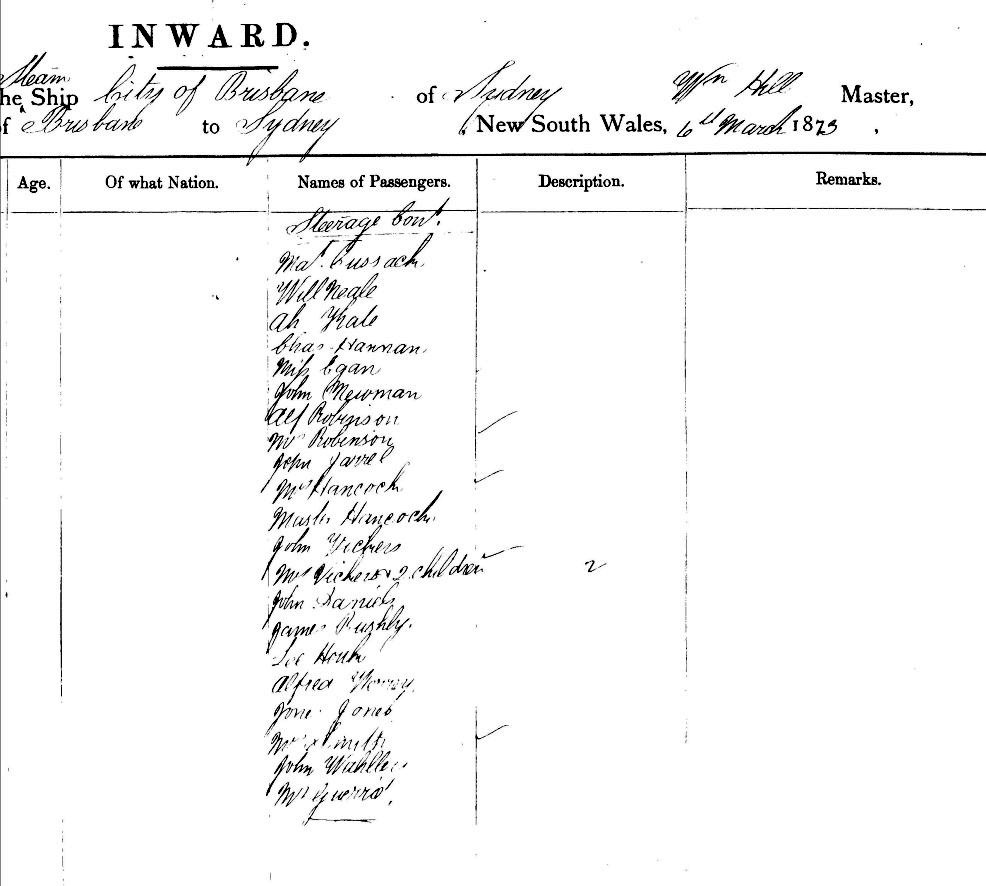 INWARD.
Steam
he Ship City of Brisbane of Sydney Wm Hill Master,
f Brisbane to Sydney New South Wales, 6th March 1873
Age. Of what Nation. Names of Passengers. Description. Remarks.
Steerage Cont.
Mat. Cussack
Will Neale
Ah
Chas Hannan
Miss Egan
John Newman
Alf Robinson
Mrs Robinson
John
Mrs Hancock
Master Hancock
John Vickers
Mrs Vickers & 2 children 2
John Daniels
James Rushby.
Alfred
Jones
Smith
John
Mrs